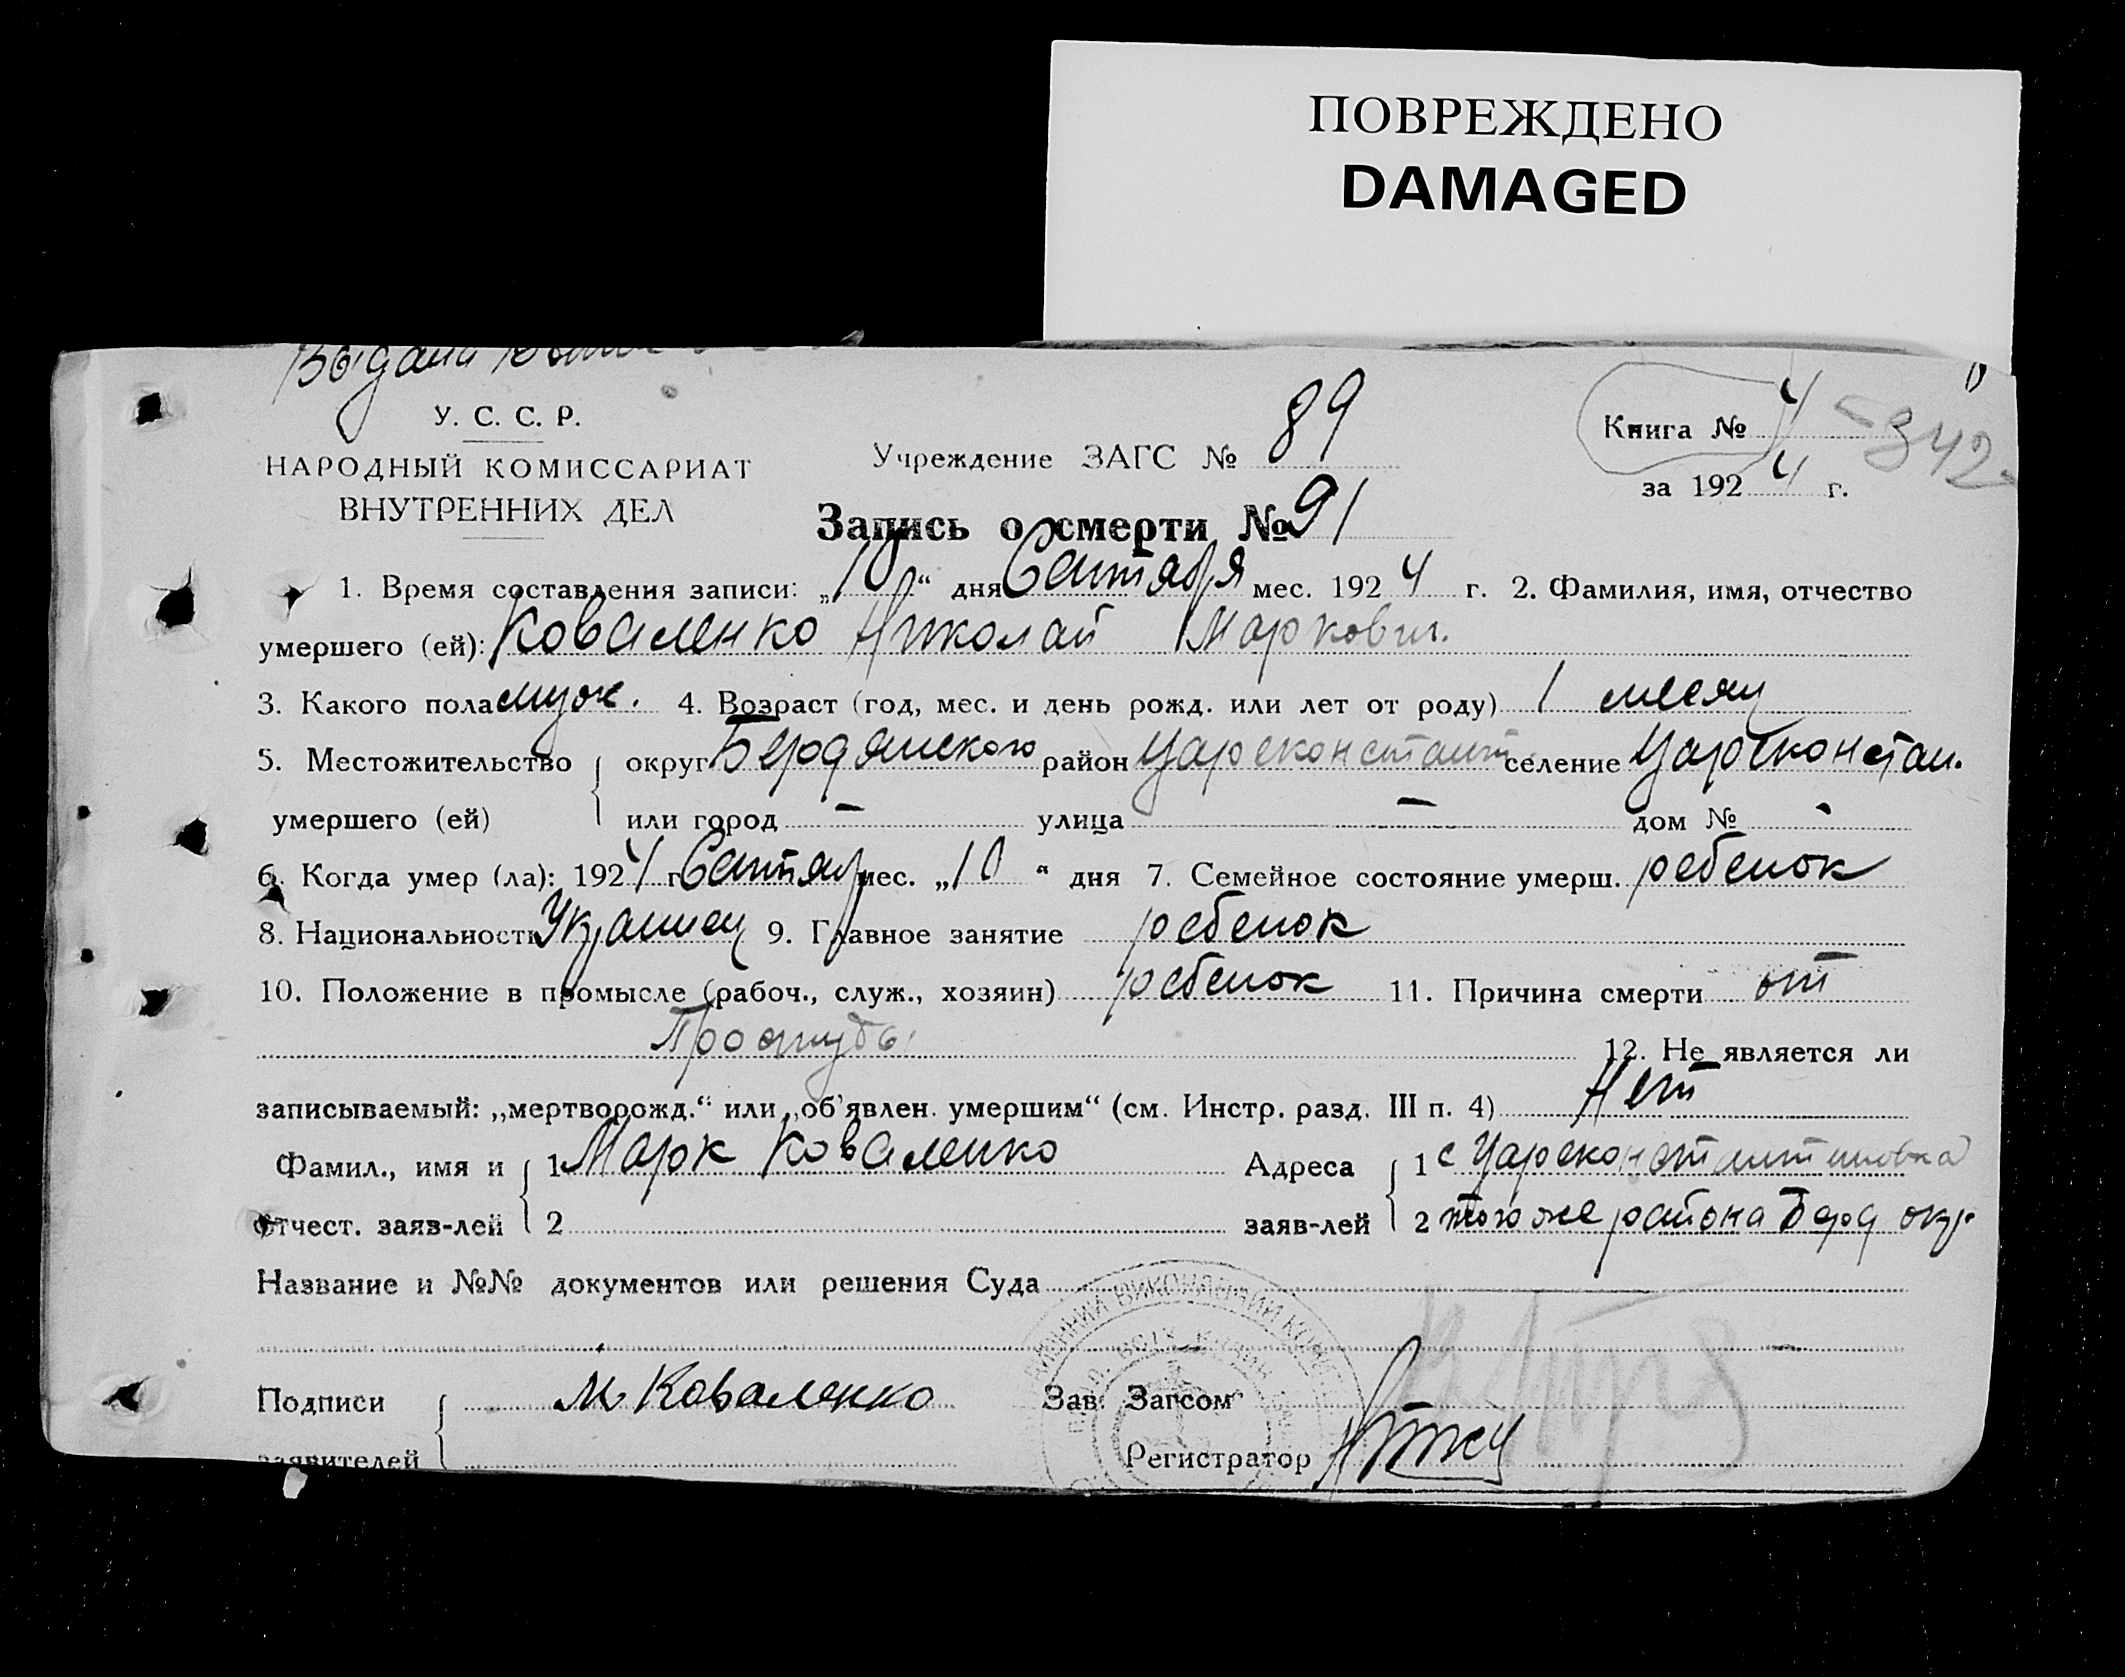 ПОВРЕЖДЕНО
DAMAGED
Выдана
У. С. С. Р.
НАРОДНЫЙ КОМИССАРИАТ
ВНУТРЕННИХ ДЕЛ
Учреждение ЗАГС № 89
Книга № 4 - 342
за 1924 г.
Запись о смерти № 91
1. Время составления записи: „10“ дня Сентября мес. 1924 г. 2. Фамилия, имя, отчество
умершего (ей): Коваленко Николай Маркович.
3. Какого пола муж. 4. Возраст (год, мес. и день рожд. или лет от роду) 1 месяц
5. Местожительство округ Бердянского район Цареконстант. селение Цареконстан.
умершего (ей) или город — улица — дом № -
6. Когда умер (ла): 1924 г Сентяб мес. „10“ дня 7. Семейное состояние умерш. ребенок
8. Национальность Украинец 9. Главное занятие ребенок
10. Положение в промысле (рабоч., служ., хозяин) ребенок 11. Причина смерти от
Простуды 12. Не является ли
записываемый: „мертворожд.“ или „об'явлен. умершим“ (см. Инстр. разд. III п. 4) Нет
Фамил., имя и 1 Марк Коваленко Адреса 1 с Цареконстантиновка
отчест. заяв-лей 2 заяв-лей 2 того же района Берд окр
Название и №№ документов или решения Суда
Подписи М Коваленко Зав. Загсом
заявителей Регистратор